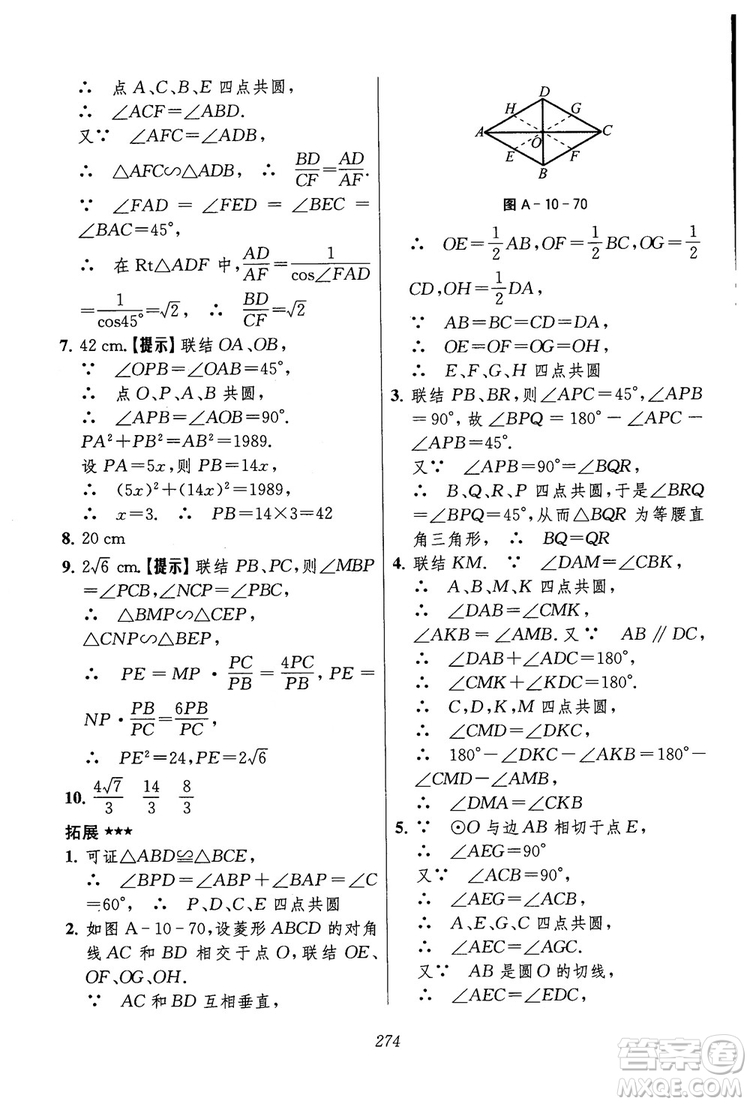 ∴ 点 A、C、B、E 四点共圆，
∴ ∠ACF=∠ABD.
又∵ ∠AFC=∠ADB，
∴ △AFC∽△ADB，∴ BD/CF=AD/AF.
∵ ∠FAD = ∠FED = ∠BEC =
∠BAC=45°，
∴ 在 Rt△ADF 中，AD/AF=1/cos∠FAD
=1/cos45°=√2，∴ BD/CF=√2
7. 42 cm.【提示】联结 OA、OB，
∵ ∠OPB=∠OAB=45°，
∴ 点 O、P、A、B 共圆，
∴ ∠APB=∠AOB=90°.
PA²+PB²=AB²=1989.
设 PA=5x，则 PB=14x，
∴ (5x)²+(14x)²=1989，
∴ x=3. ∴ PB=14×3=42
8. 20 cm
9. 2√6 cm.【提示】联结 PB、PC，则∠MBP
=∠PCB，∠NCP=∠PBC，
∴ △BMP∽△CEP，
△CNP∽△BEP，
∴ PE=MP·PC/PB=4PC/PB，PE=
NP·PB/PC=6PB/PC，
∴ PE²=24，PE=2√6
10. 4√7/3 14/3 8/3
拓展 ★★★
1. 可证△ABD≌△BCE，
∴ ∠BPD=∠ABP+∠BAP=∠C
=60°，∴ P、D、C、E 四点共圆
2. 如图 A-10-70，设菱形 ABCD 的对角
线 AC 和 BD 相交于点 O，联结 OE、
OF、OG、OH.
∵ AC 和 BD 互相垂直，
D
H
G
A
O
C
E
F
B
图 A-10-70
∴ OE=1/2 AB，OF=1/2 BC，OG=1/2
CD，OH=1/2 DA，
∵ AB=BC=CD=DA，
∴ OE=OF=OG=OH，
∴ E、F、G、H 四点共圆
3. 联结 PB、BR，则∠APC=45°，∠APB
=90°，故∠BPQ=180°-∠APC-
∠APB=45°.
又∵ ∠APB=90°=∠BQR，
∴ B、Q、R、P 四点共圆，于是∠BRQ
=∠BPQ=45°，从而△BQR 为等腰直
角三角形，∴ BQ=QR
4. 联结 KM. ∵ ∠DAM=∠CBK，
∴ A、B、M、K 四点共圆，
∴ ∠DAB=∠CMK，
∠AKB=∠AMB. 又∵ AB∥DC，
∴ ∠DAB+∠ADC=180°，
∴ ∠CMK+∠KDC=180°，
∴ C、D、K、M 四点共圆，
∴ ∠CMD=∠DKC，
∴ 180°-∠DKC-∠AKB=180°-
∠CMD-∠AMB，
∴ ∠DMA=∠CKB
5. ∵ ⊙O 与边 AB 相切于点 E，
∴ ∠AEG=90°
又∵ ∠ACB=90°，
∴ ∠AEG=∠ACB，
∴ A、E、G、C 四点共圆，
∴ ∠AEC=∠AGC，
又∵ AB 是圆 O 的切线，
∴ ∠AEC=∠EDC，
274
答案圈
MXQE.COM